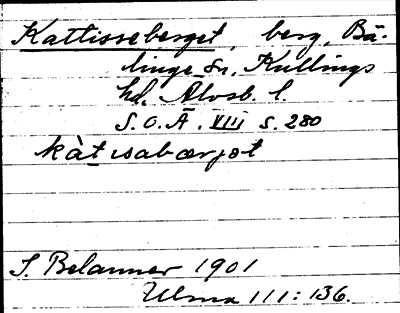 Kattisseberget, berg, Bä-
linge sn, Kullings
hd, Älvsb. l.
S.O.Ä. VIII s. 280
kàt ısabærjət
S. Belanner 1901
Ulma 111:136.